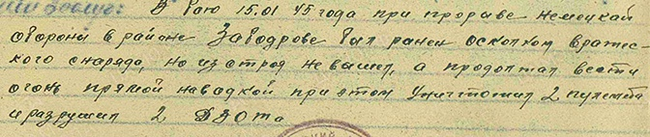 В бою 15.01 45 года при прорыве немецкой
обороны в районе Заводрове был ранен осколком вражес-
кого снаряда, но из строя не вышел, а продолжал вести
огонь прямой наводкой при этом уничтожил 2 пулемета
и разрушил 2 ДЗОТа